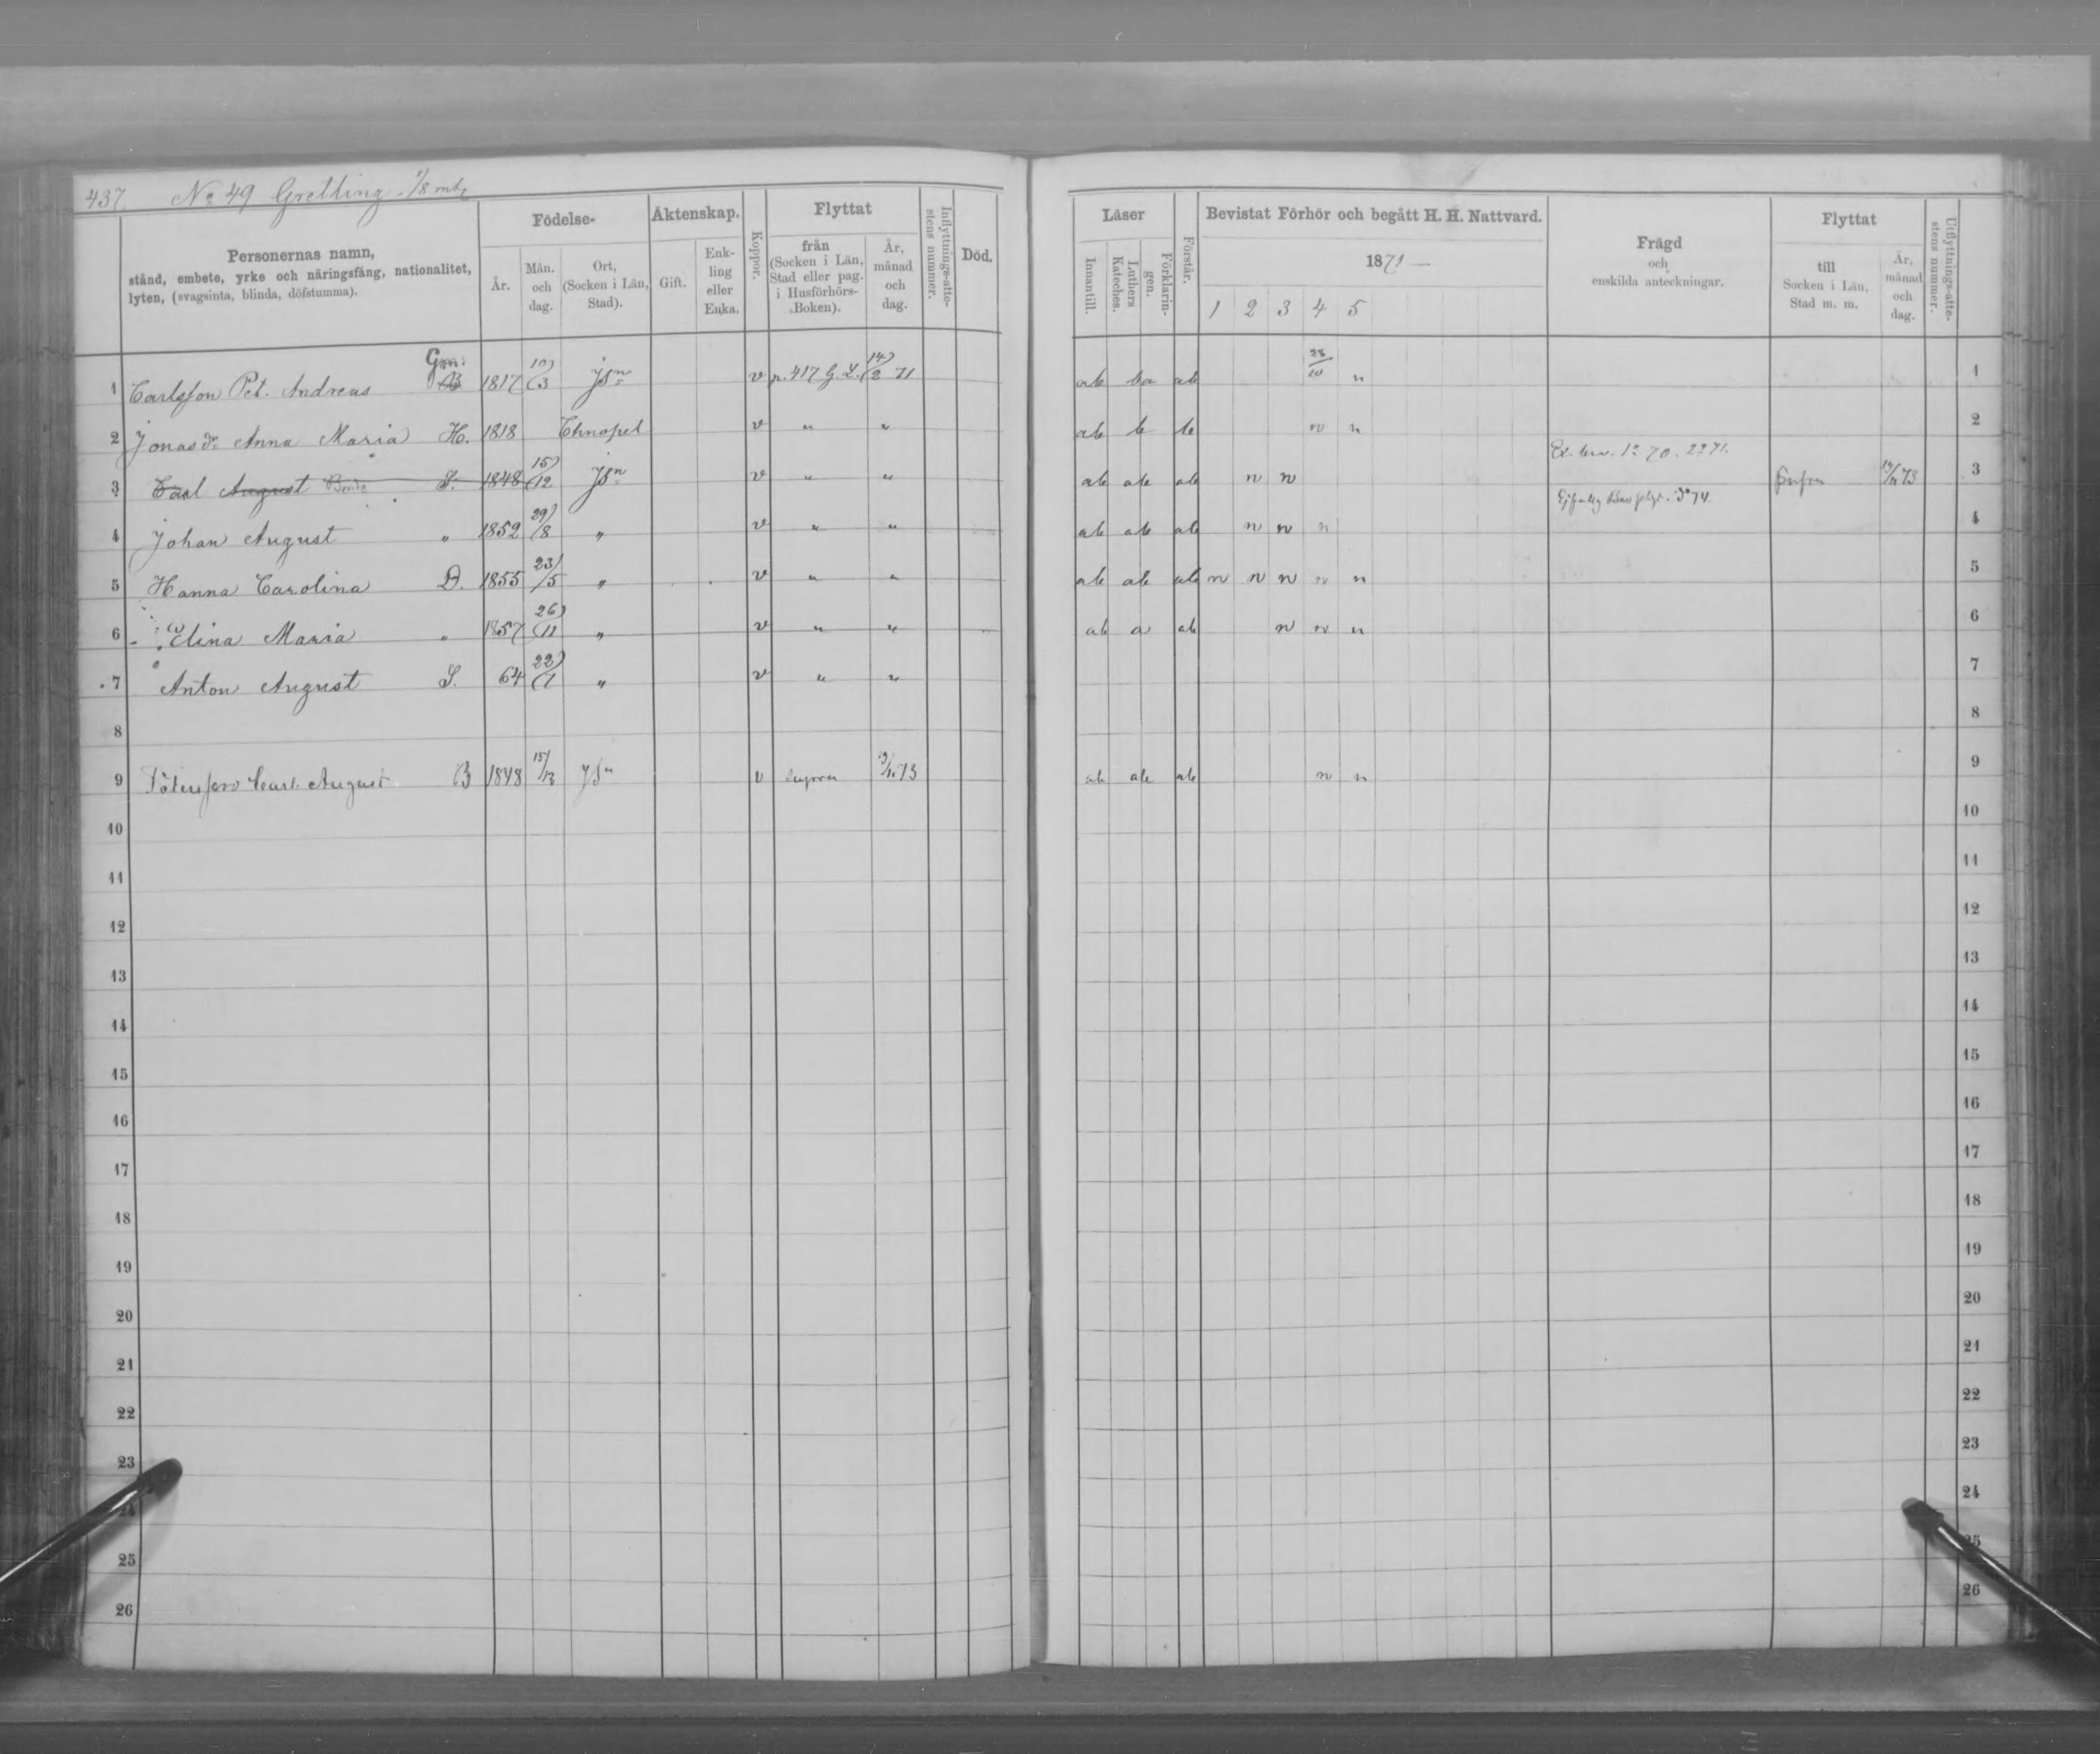 437. No 49 Gretling 1/8 mtl
Personernas namn,
stånd, embete, yrke och näringsfång, nationalitet,
lyten, (svagsinta, blinda, döfstumma).
Födelse-
År.
Mån. och dag.
Ort, (Socken i Län, Stad).
Äktenskap.
Gift.
Enkling eller Enka.
Koppor.
Flyttat
från (Socken i Län, Stad eller pag. i Husförhörs-Boken).
År, månad och dag.
Inflyttnings-attestens nummer.
Död.
Läser
Innantill.
Luthers Kateches.
Förklaringen.
Förstår.
Bevistat Förhör och begått H. H. Nattvard.
1871 —
1 2 3 4 5
Frägd
och
enskilda anteckningar.
Flyttat
till Socken i Län, Stad m. m.
År, månad och dag.
Utflyttnings-attestens nummer.
Gm:
1 Carlsson Pet. Andreas B 1817 10/3 JSn v p. 417 G. L. 14/2 71 ab ba ab 28/10 n 1
2 Jonasdr Anna Maria H. 1818 Chnopel v " " ab b b n n 2
Ex. bev. 1º 70. 2º 71.
3 Carl August S. 1848 15/12 JSn v " " ab ab ab n n 19/11 73 3
4 Johan August " 1852 29/8 " v " " ab ab ab n n n 4
5 Hanna Carolina D. 1855 23/5 " v " " ab ab ab n n n n n 5
6 Elina Maria " 1857 26/11 " v " " ab a ab n n n 6
7 Anton August S. 64 22/1 " v " " 7
8 8
9 Carl August B 1848 15/12 JSn v supra 73 ab ab ab n n 9
10 10
11 11
12 12
13 13
14 14
15 15
16 16
17 17
18 18
19 19
20 20
21 21
22 22
23 23
24 24
25 25
26 26